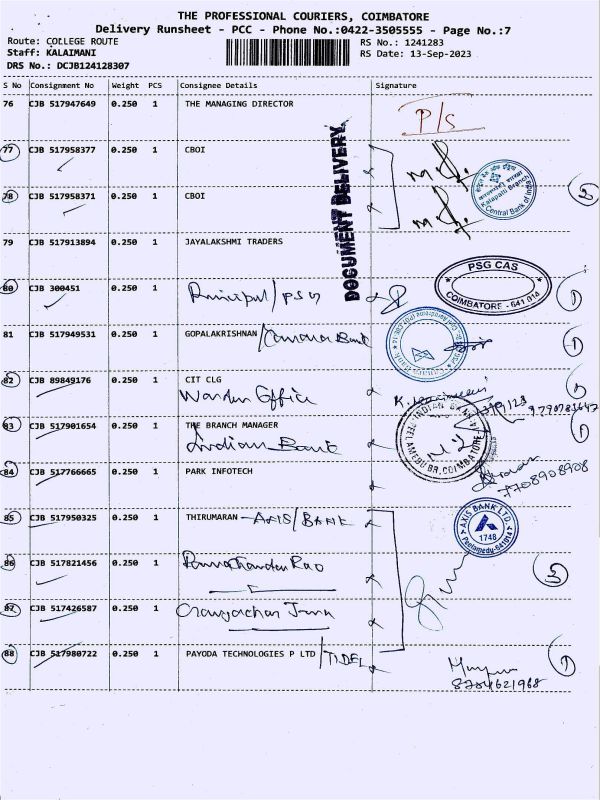 THE PROFESSIONAL COURIERS, COIMBATORE
Delivery Runsheet - PCC - Phone No.:0422-3505555 - Page No.:7
Route: COLLEGE ROUTE RS No.: 1241283
Staff: KALAIMANI RS Date: 13-Sep-2023
DRS No.: DCJB124128307
S No Consignment No Weight PCS Consignee Details Signature
76 CJB 517947649 0.250 1 THE MANAGING DIRECTOR P/S
77 CJB 517958377 0.250 1 CBOI
DOCUMENT DELIVERY.
Kalapatti Branch
Central Bank of India
78 CJB 517958371 0.250 1 CBOI 2
79 CJB 517913894 0.250 1 JAYALAKSHMI TRADERS
PSG CAS
COIMBATORE - 641 014
80 CJB 300451 0.250 1 Principal/PSG 1
81 CJB 517949531 0.250 1 GOPALAKRISHNAN /Canara Bank 1
82 CJB 89849176 0.250 1 CIT CLG 1
Warden Office K.
83 CJB 517901654 0.250 1 THE BRANCH MANAGER 1
Indian Bank
INDIAN BANK
PEELAMEDU BR, COIMBATORE
84 CJB 517766665 0.250 1 PARK INFOTECH
7708908908
85 CJB 517950325 0.250 1 THIRUMARAN - AXIS/BANK
AXIS BANK LTD.
1748
Peelamedu-641014
86 CJB 517821456 0.250 1 Ramachandra Rao 3
87 CJB 517426587 0.250 1
88 CJB 517980722 0.250 1 PAYODA TECHNOLOGIES P LTD /TIDEL 1
8754621968